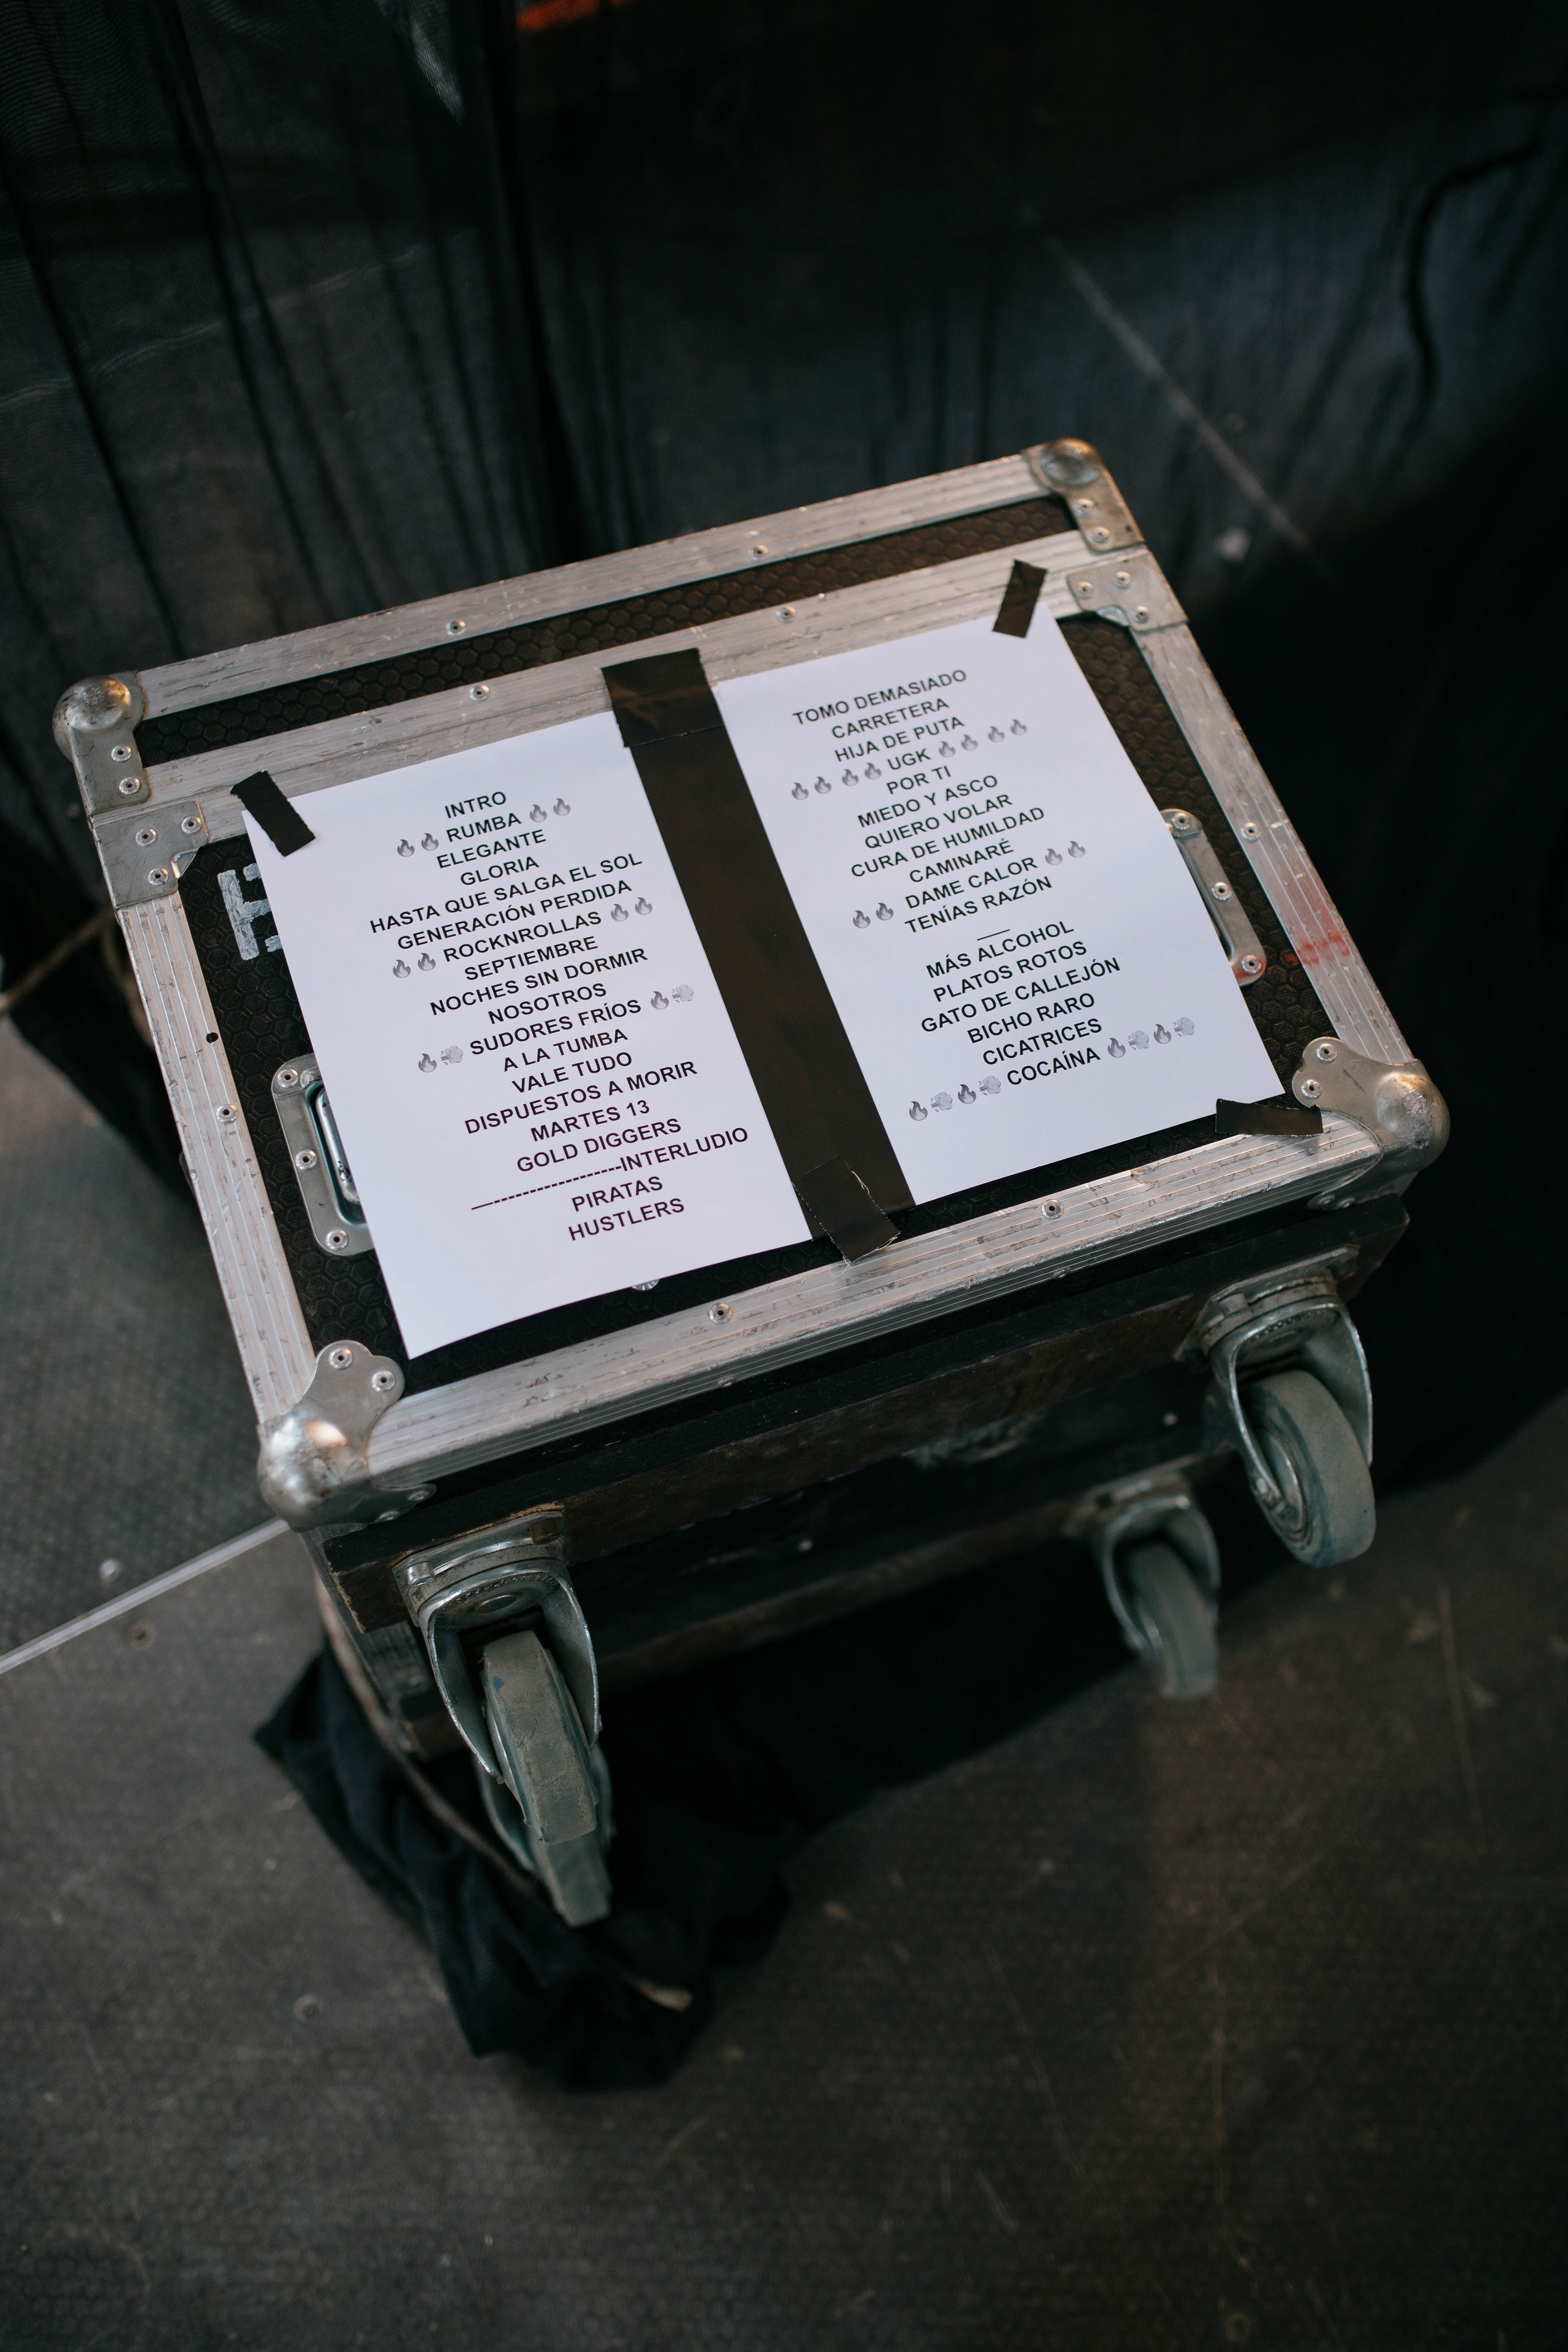 INTRO
🔥🔥 RUMBA 🔥🔥
ELEGANTE
GLORIA
HASTA QUE SALGA EL SOL
GENERACIÓN PERDIDA
🔥🔥 ROCKNROLLAS 🔥🔥
SEPTIEMBRE
NOCHES SIN DORMIR
NOSOTROS
🔥💨 SUDORES FRÍOS 🔥💨
A LA TUMBA
VALE TUDO
DISPUESTOS A MORIR
MARTES 13
GOLD DIGGERS
—------------------INTERLUDIO
PIRATAS
HUSTLERS
TOMO DEMASIADO
CARRETERA
HIJA DE PUTA
🔥🔥🔥🔥 UGK 🔥🔥🔥🔥
POR TI
MIEDO Y ASCO
QUIERO VOLAR
CURA DE HUMILDAD
CAMINARÉ
🔥🔥 DAME CALOR 🔥🔥
TENÍAS RAZÓN
__
MÁS ALCOHOL
PLATOS ROTOS
GATO DE CALLEJÓN
BICHO RARO
CICATRICES
🔥💨🔥💨 COCAÍNA 🔥💨🔥💨